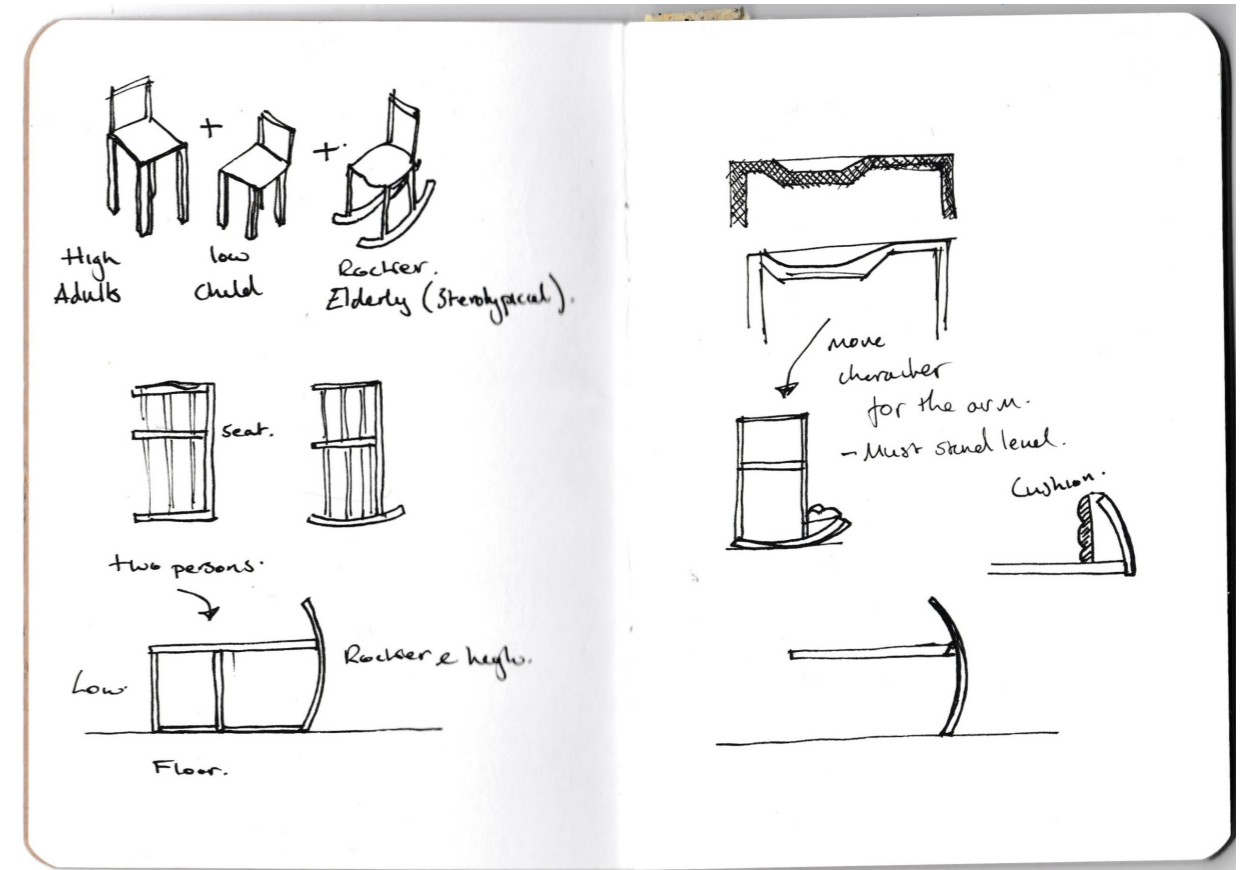 High
Adults
low
Child
Rocker.
Elderly (Sterotypical).
seat.
two persons.
Low.
Rocker e
Floor.
move
character
for the arm.
- Must stand level.
Cushion.